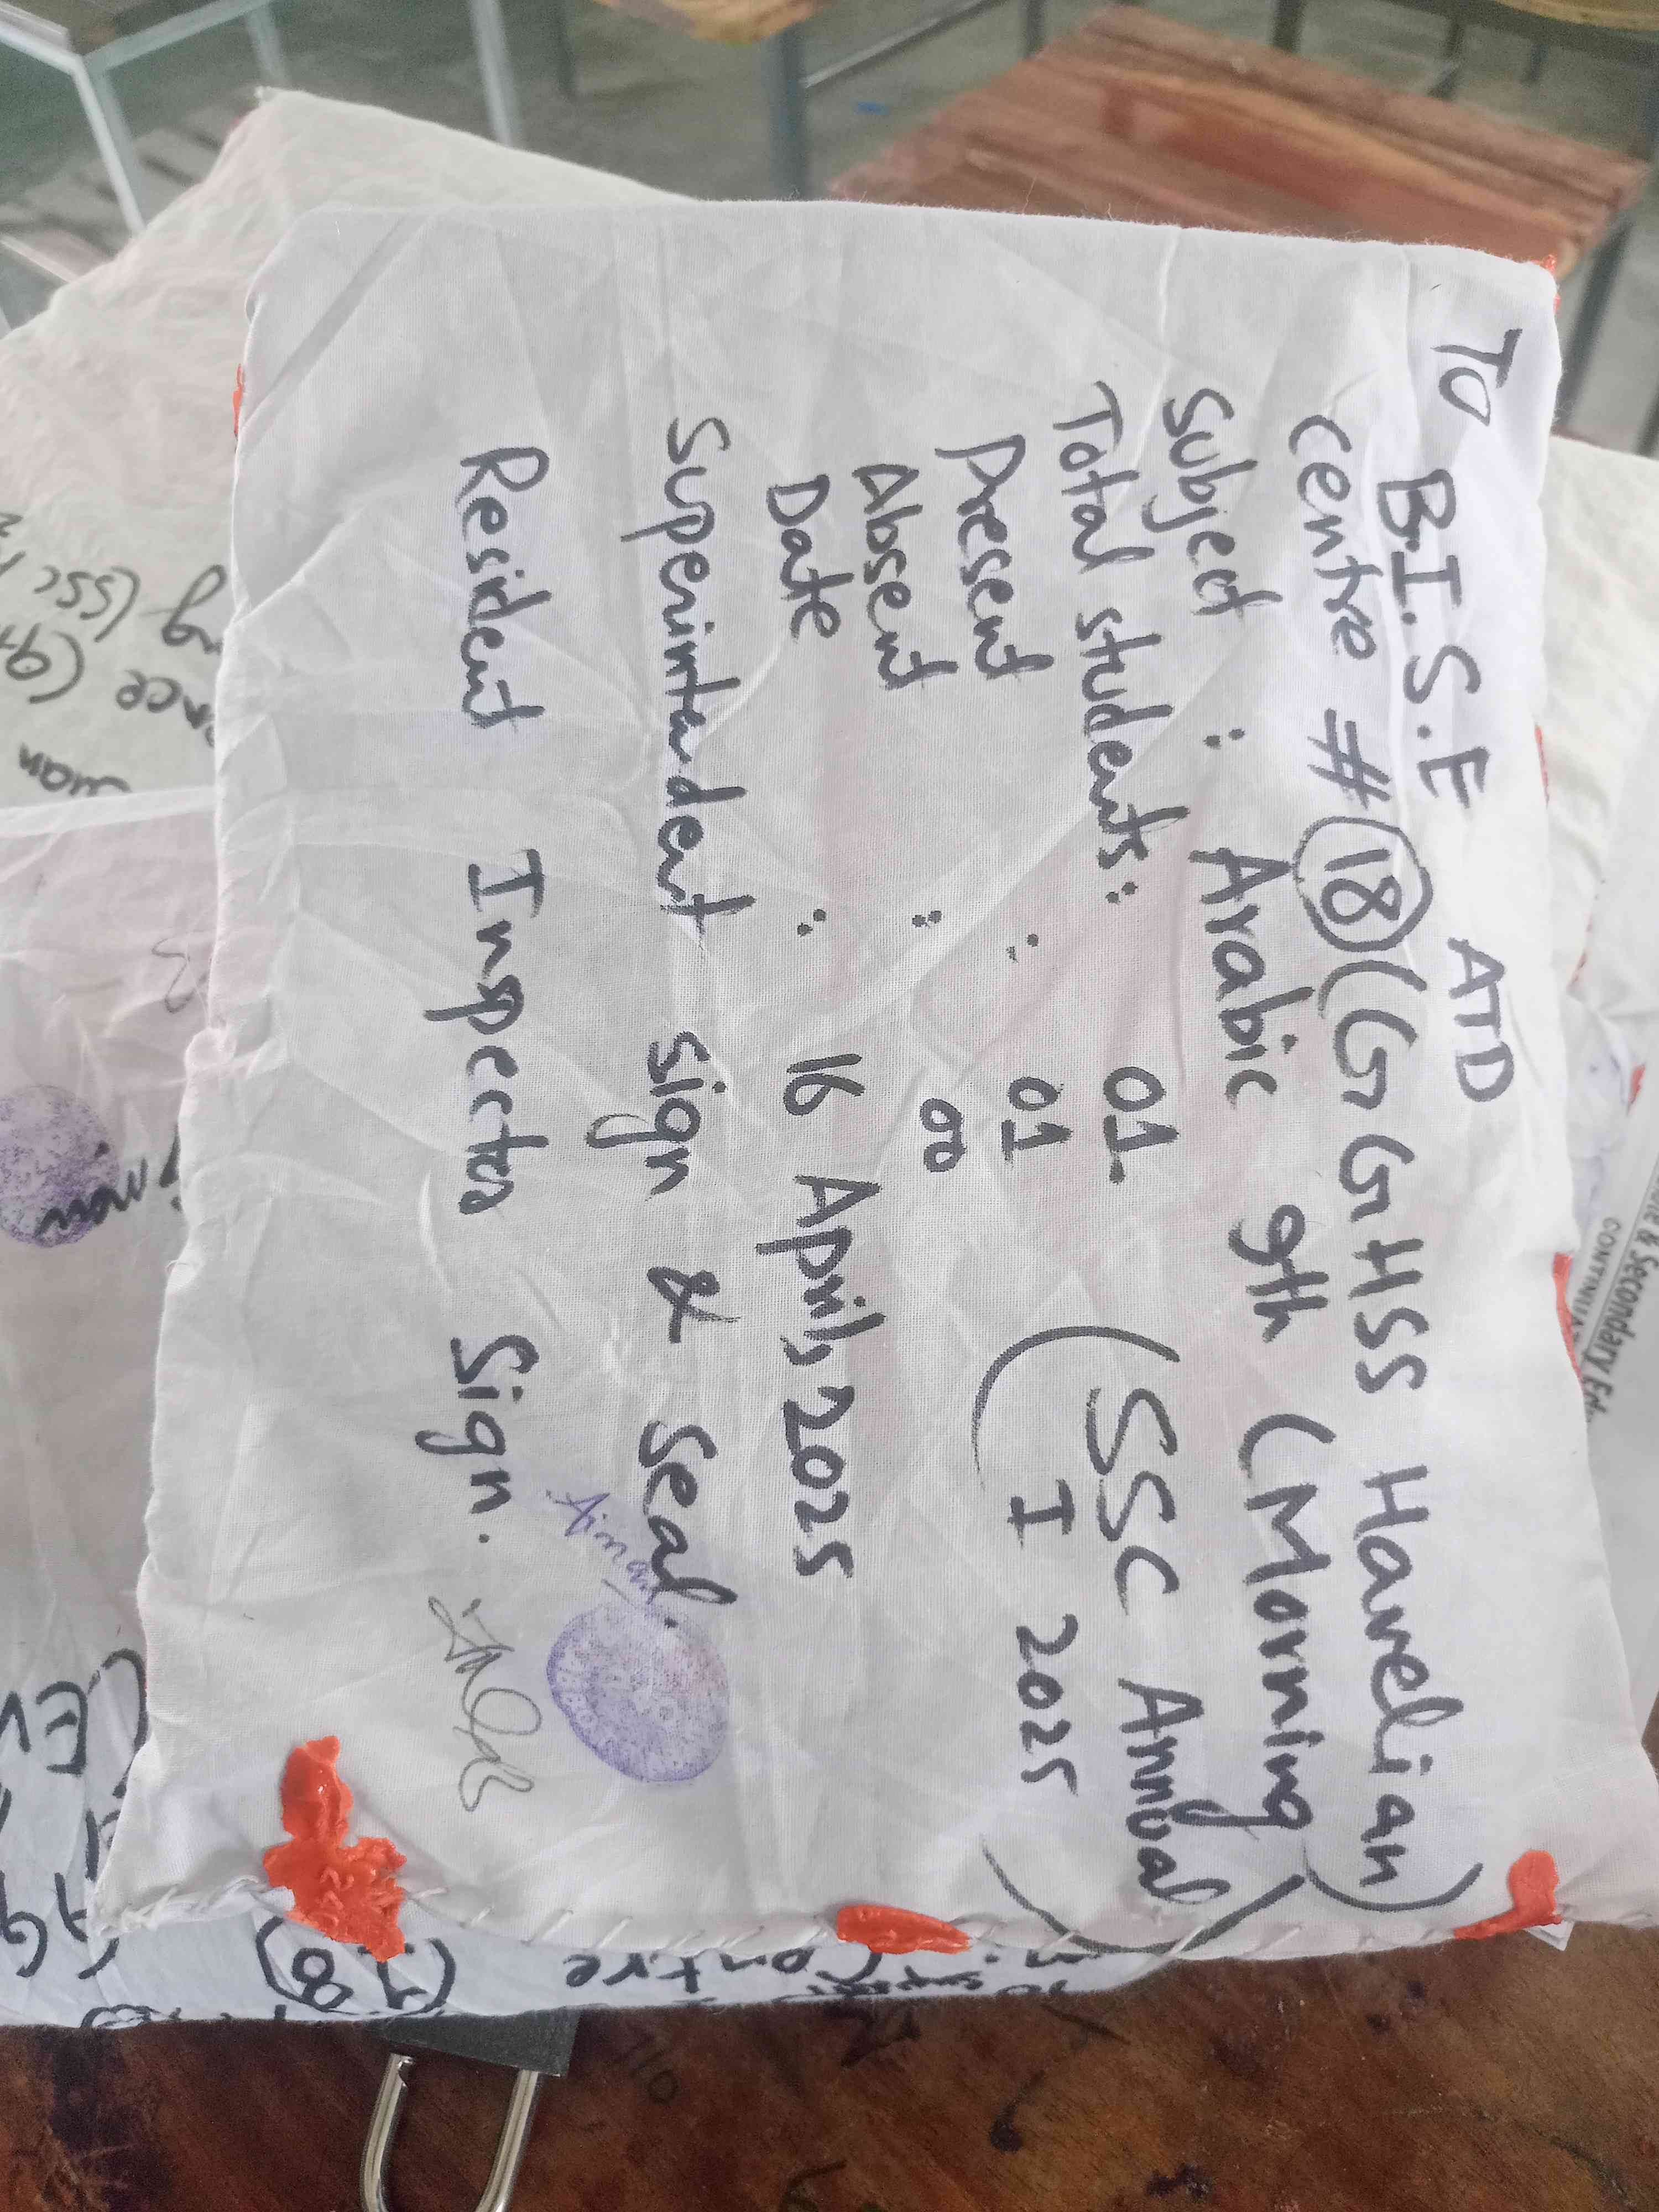 To
B.I.S.E ATD
Centre # 18 (GGHSS Havelian)
Subject : Arabic 9th (Morning)
Total students: 01 (SSC Annual
Present : 01 I 2025)
Absent : 00
Date : 16 April, 2025
Superintendent sign & Seal.
Resident Inspector Sign.
& Secondary Ed
(SSC
Centre
(18)